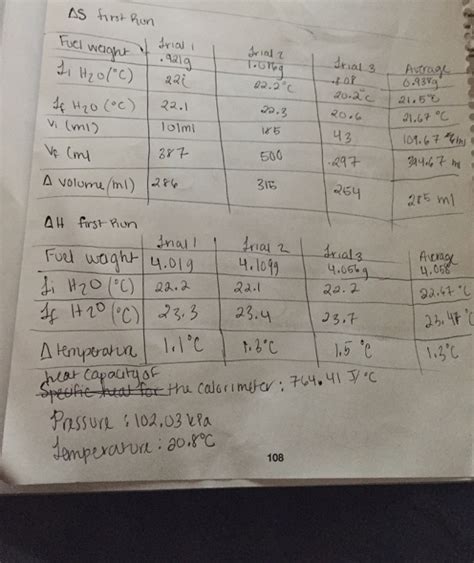 ΔS first Run
Fuel weight | Trial 1 .921g | Trial 2 1.086g | Trial 3 .808 | Average 0.938g
Ti H2O (°C) | 22 | 22.2°C | 20.2°C | 21.5°C
Tf H2O (°C) | 22.1 | 22.3 | 20.6 | 21.67 °C
Vi (ml) | 101ml | 185 | 43 | 109.67 ml
Vf (ml | 387 | 500 | 297 | 394.67 ml
Δ volume (ml) | 286 | 315 | 254 | 285 ml
ΔH first Run
Fuel weight | Trial 1 4.01g | Trial 2 4.109g | Trial 3 4.056g | Average 4.058
Ti H2O (°C) | 22.2 | 22.1 | 22.2 | 22.67 °C
Tf H2O (°C) | 23.3 | 23.4 | 23.7 | 23.47 °C
Δ temperature | 1.1°C | 1.3°C | 1.5 °C | 1.3°C
heat capacity of
Specific heat for the calorimeter : 764.41 J/°C
Pressure : 102.03 kPa
Temperature : 20.8°C
108